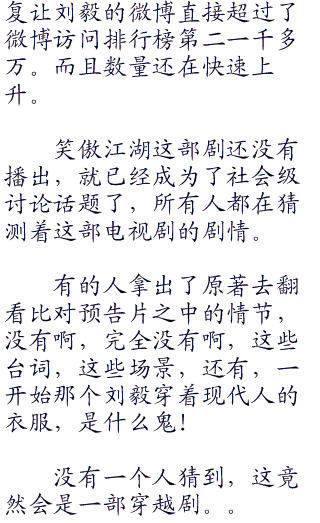 复让刘毅的微博直接超过了
微博访问排行榜第二一千多
万。而且数量还在快速上
升。
笑傲江湖这部剧还没有
播出，就已经成为了社会级
讨论话题了，所有人都在猜
测着这部电视剧的剧情。
有的人拿出了原著去翻
看比对预告片之中的情节，
没有啊，完全没有啊，这些
台词，这些场景，还有，一
开始那个刘毅穿着现代人的
衣服，是什么鬼！
没有一个人猜到，这竟
然会是一部穿越剧。。